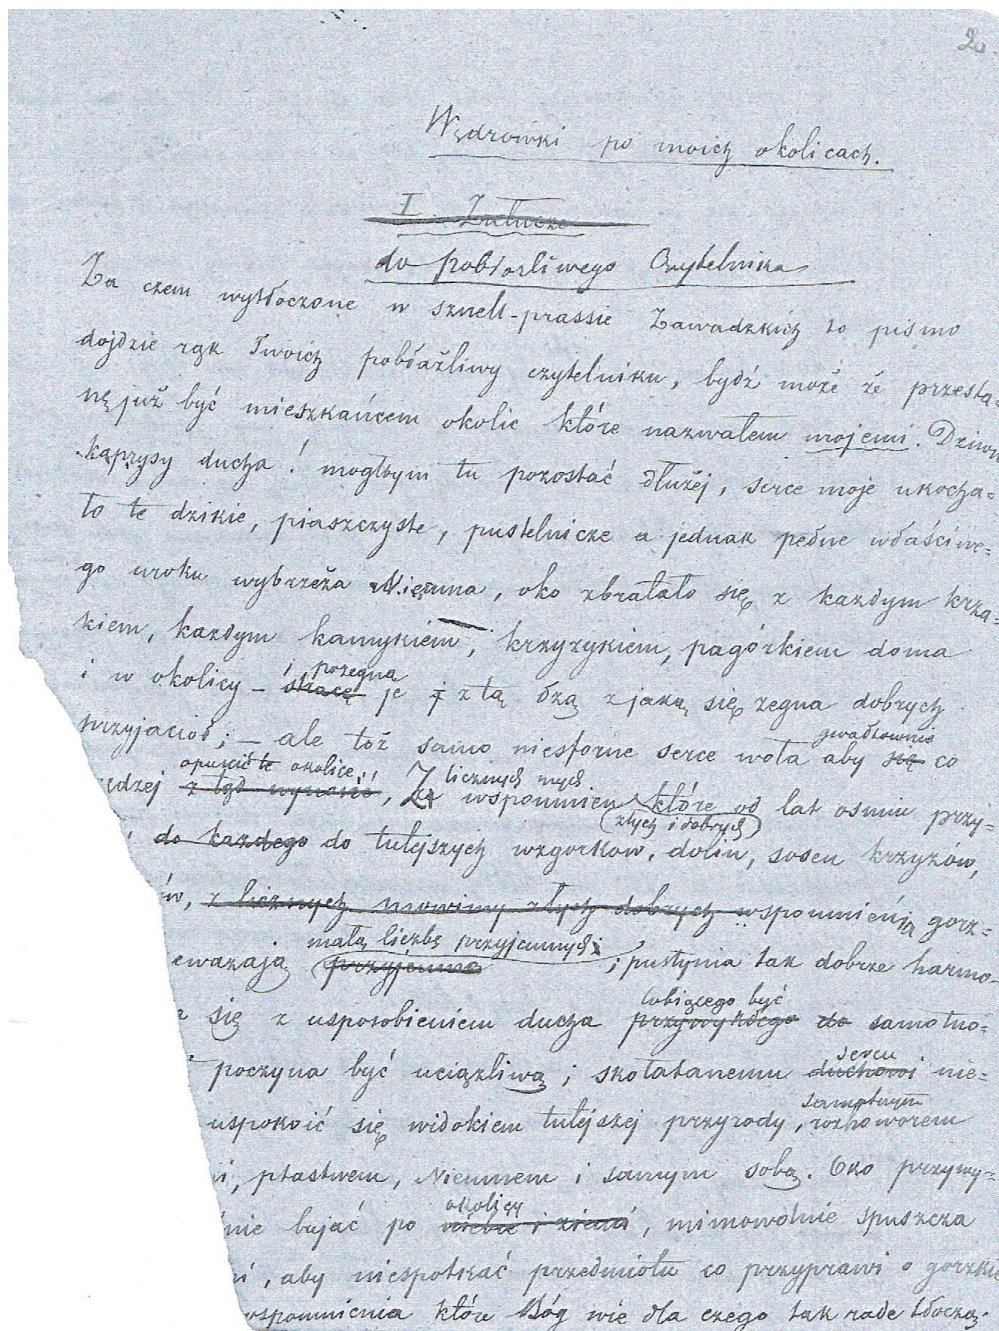 20.
Wędrówki po moich okolicach.
I Załucze
do pobłażliwego Czytelnika
Za czem wytłoczone w sznell-prassie Zawadzkich to pismo
dojdzie rąk Twoich pobłażliwy czytelniku, bydź może że przesta=
nę już być mieszkańcem okolic które nazwałem mojemi. Dziwn
kaprysy ducha! mogłbym tu pozostać dłużéj, serce moje ukocha=
ło te dzikie, piaszczyste, pustelnicze a jednak pełne właściwe=
go uroku wybrzeża Niemna, oko zbratało się z każdym krza=
kiem, każdym kamykiem, krzyżykiem, pagórkiem doma
pożegna
i w okolicy – je z łą łzą z jaką się żegna dobrych
przyjacioł; – ale toż samo niesforne serce woła aby się co
gwałtownie
opuścić te okolice, licznych mych
ędzej z tąd wyrwać, Z wspomnien które od lat ośmiu przy-
(złych i dobrych)
do każdego do tutejszych wzgorkow, dolin, sosen krzyżów,
ów, z licznych mowimy złych dobrych wspomnień gorz-
małą liczbę przyjemnych
eważają przyjemne; pustynia tak dobrze harmo-
lubiącego być
się z usposobieniem ducha przywykłego do samotno=
poczyna być uciążliwą; skołatanemu duchowi nie=
sercu
samotnym
uspokoić się widokiem tutejszej przyrody, rozhoworem
i, ptastwem, Niemnem i samym sobą. Oko przywy=
okolicy
nie bujać po niebie i ziemi, mimowolnie spuszcza
i, aby niespotkać przedmiotu co przyprawi o gorzkie
wspomnienia które Bóg wie dla czego tak rade tłoczą.